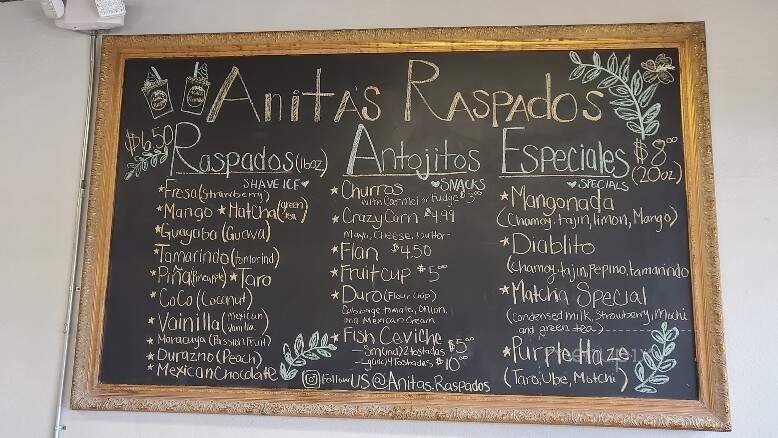 Anita's Raspados
$6.50
Raspados (16oz)
Shave Ice
*Fresa (strawberry)
*Mango *Hatcha (green tea)
*Guayaba (Guava)
*Tamarindo (Tamarind)
*Piña (Pineapple) *Taro
*CoCo (Coconut)
*Vainilla (mexican vanilla)
*Maracuya (Passion Fruit)
*Durazno (Peach)
*Mexican Chocolate
Antojitos
Snacks
*Churros
with Carmel or fudge $3.00
*Crazy Corn $4.99
Mayo, Cheese, butter
*Flan $4.50
*Fruit cup $5.00
*Duro (Flour Chip)
Cabbage, tomato, Onion,
and Mexican Cream
*Fish Ceviche
-Sm(uno) 2 tostadas $5.00
4 Tostadas $10.00
Follow US @Anitas.Raspados
Especiales $8.00
(20oz)
Specials
*Mangonada
(Chamoy, tajin, limon, Mango)
*Diablito
(Chamoy, tajin, Pepino, tamarindo
*Matcha Special
(condensed milk, Strawberry, Mochi
and green tea)
*Purple Haze
(Taro, Ube, Motchi)